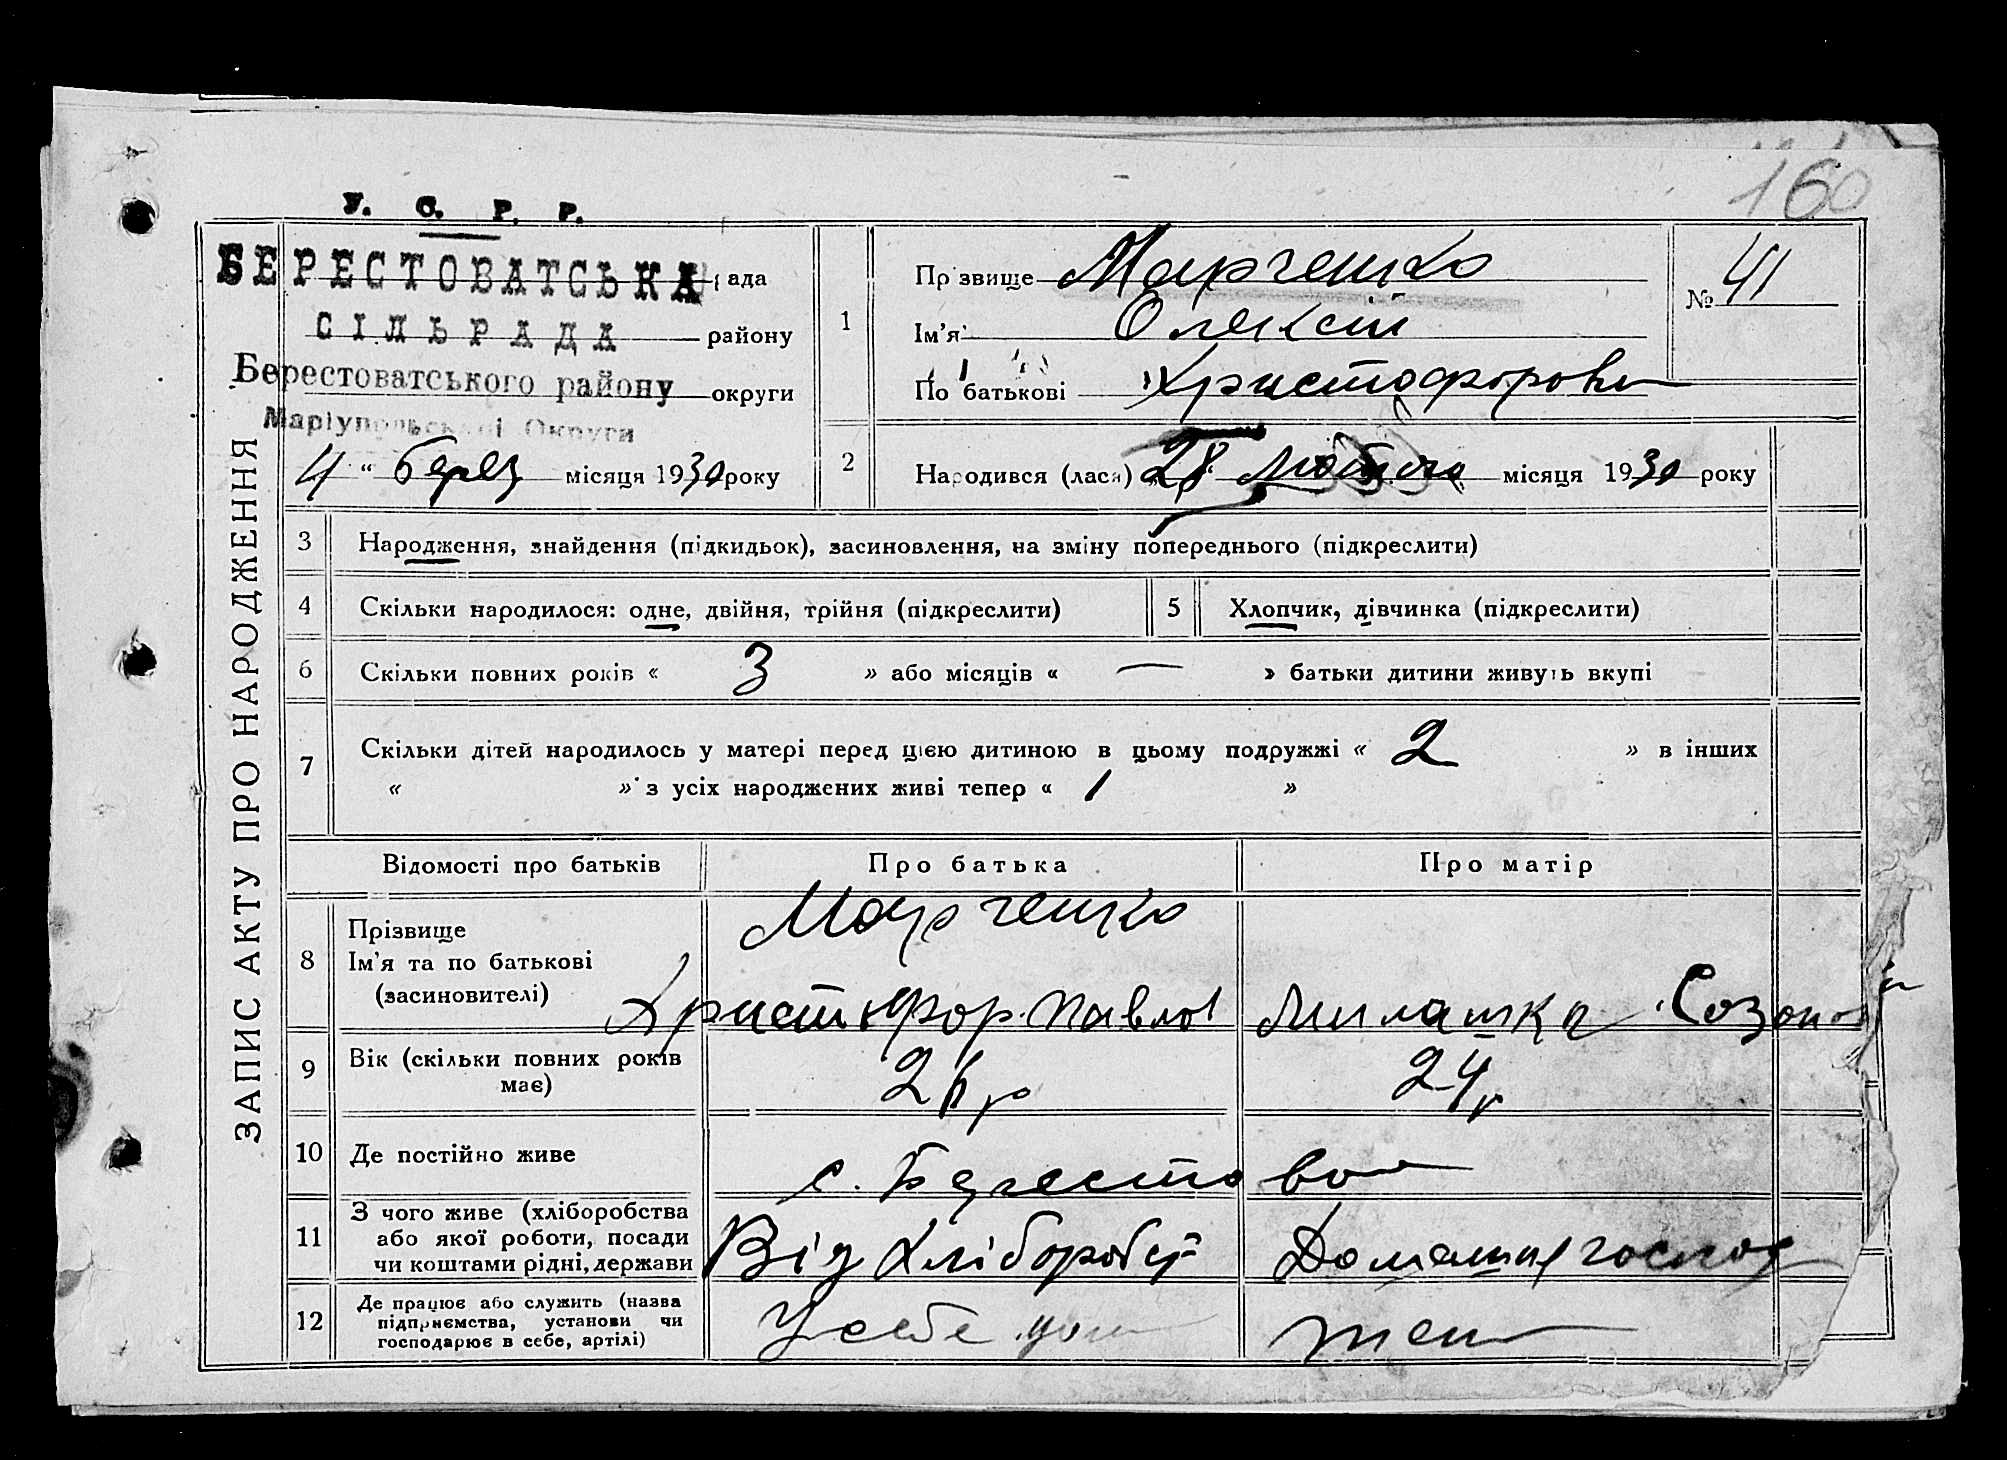 160
У. С. Р. Р.
БЕРЕСТОВАТСЬКА рада
СІЛЬРАДА району
Берестоватського району округи
Маріупольської Округи
4 “ берез місяця 1930 року
ЗАПИС АКТУ ПРО НАРОДЖЕННЯ
1
Прізвище Марченко
№ 41
Ім’я Олексій
По батькові Христофорови
2
Народився (лася) „28“ Лютого місяця 1930 року
3 Народження, знайдення (підкидьок), засиновлення, на зміну попереднього (підкреслити)
4 Скільки народилося: одне, двійня, трійня (підкреслити) 5 Хлопчик, дівчинка (підкреслити)
6 Скільки повних років « 3 » або місяців « — » батьки дитини живуть вкупі
7 Скільки дітей народилось у матері перед цією дитиною в цьому подружжі « 2 » в інших
« » з усіх народжених живі тепер « 1 »
Відомості про батьків Про батька Про матір
8 Прізвище Марченко
Ім’я та по батькові
(засиновителі) Христофор Павлов Милашка Созонов
9 Вік (скільки повних років має) 26 р 24 р
10 Де постійно живе с. Берестова
11 З чого живе (хліборобства
або якої роботи, посади
чи коштами рідні, держави Від хлібороб Домашня господ
12 Де працює або служить (назва
підприємства, установи чи
господарює в себе, артілі) У себе теж